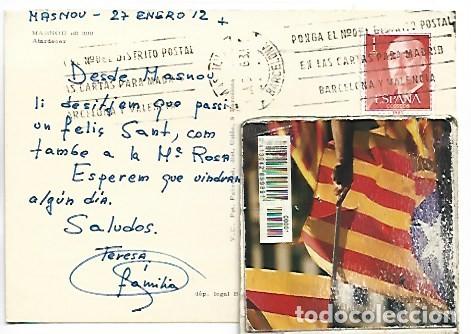 MASNOU - 27 ENERO 12
MASNOU
Atardecer
EL Nº DEL DISTRITO POSTAL
EN LAS CARTAS PARA MADRID
BARCELONA Y VALENCIA
PONGA EL Nº DEL DISTRITO POSTAL
EN LAS CARTAS PARA MADRID
BARCELONA Y VALENCIA
BARCELONA
ESPAÑA
CORREOS
Desde Masnou
li desitjem que passi
un feliç Sant, com
tambe a la Mª Rosa
Esperem que vindran
algún dia.
Saludos.
Teresa
i família
dép. legal B
todocoleccion
todocoleccion.net